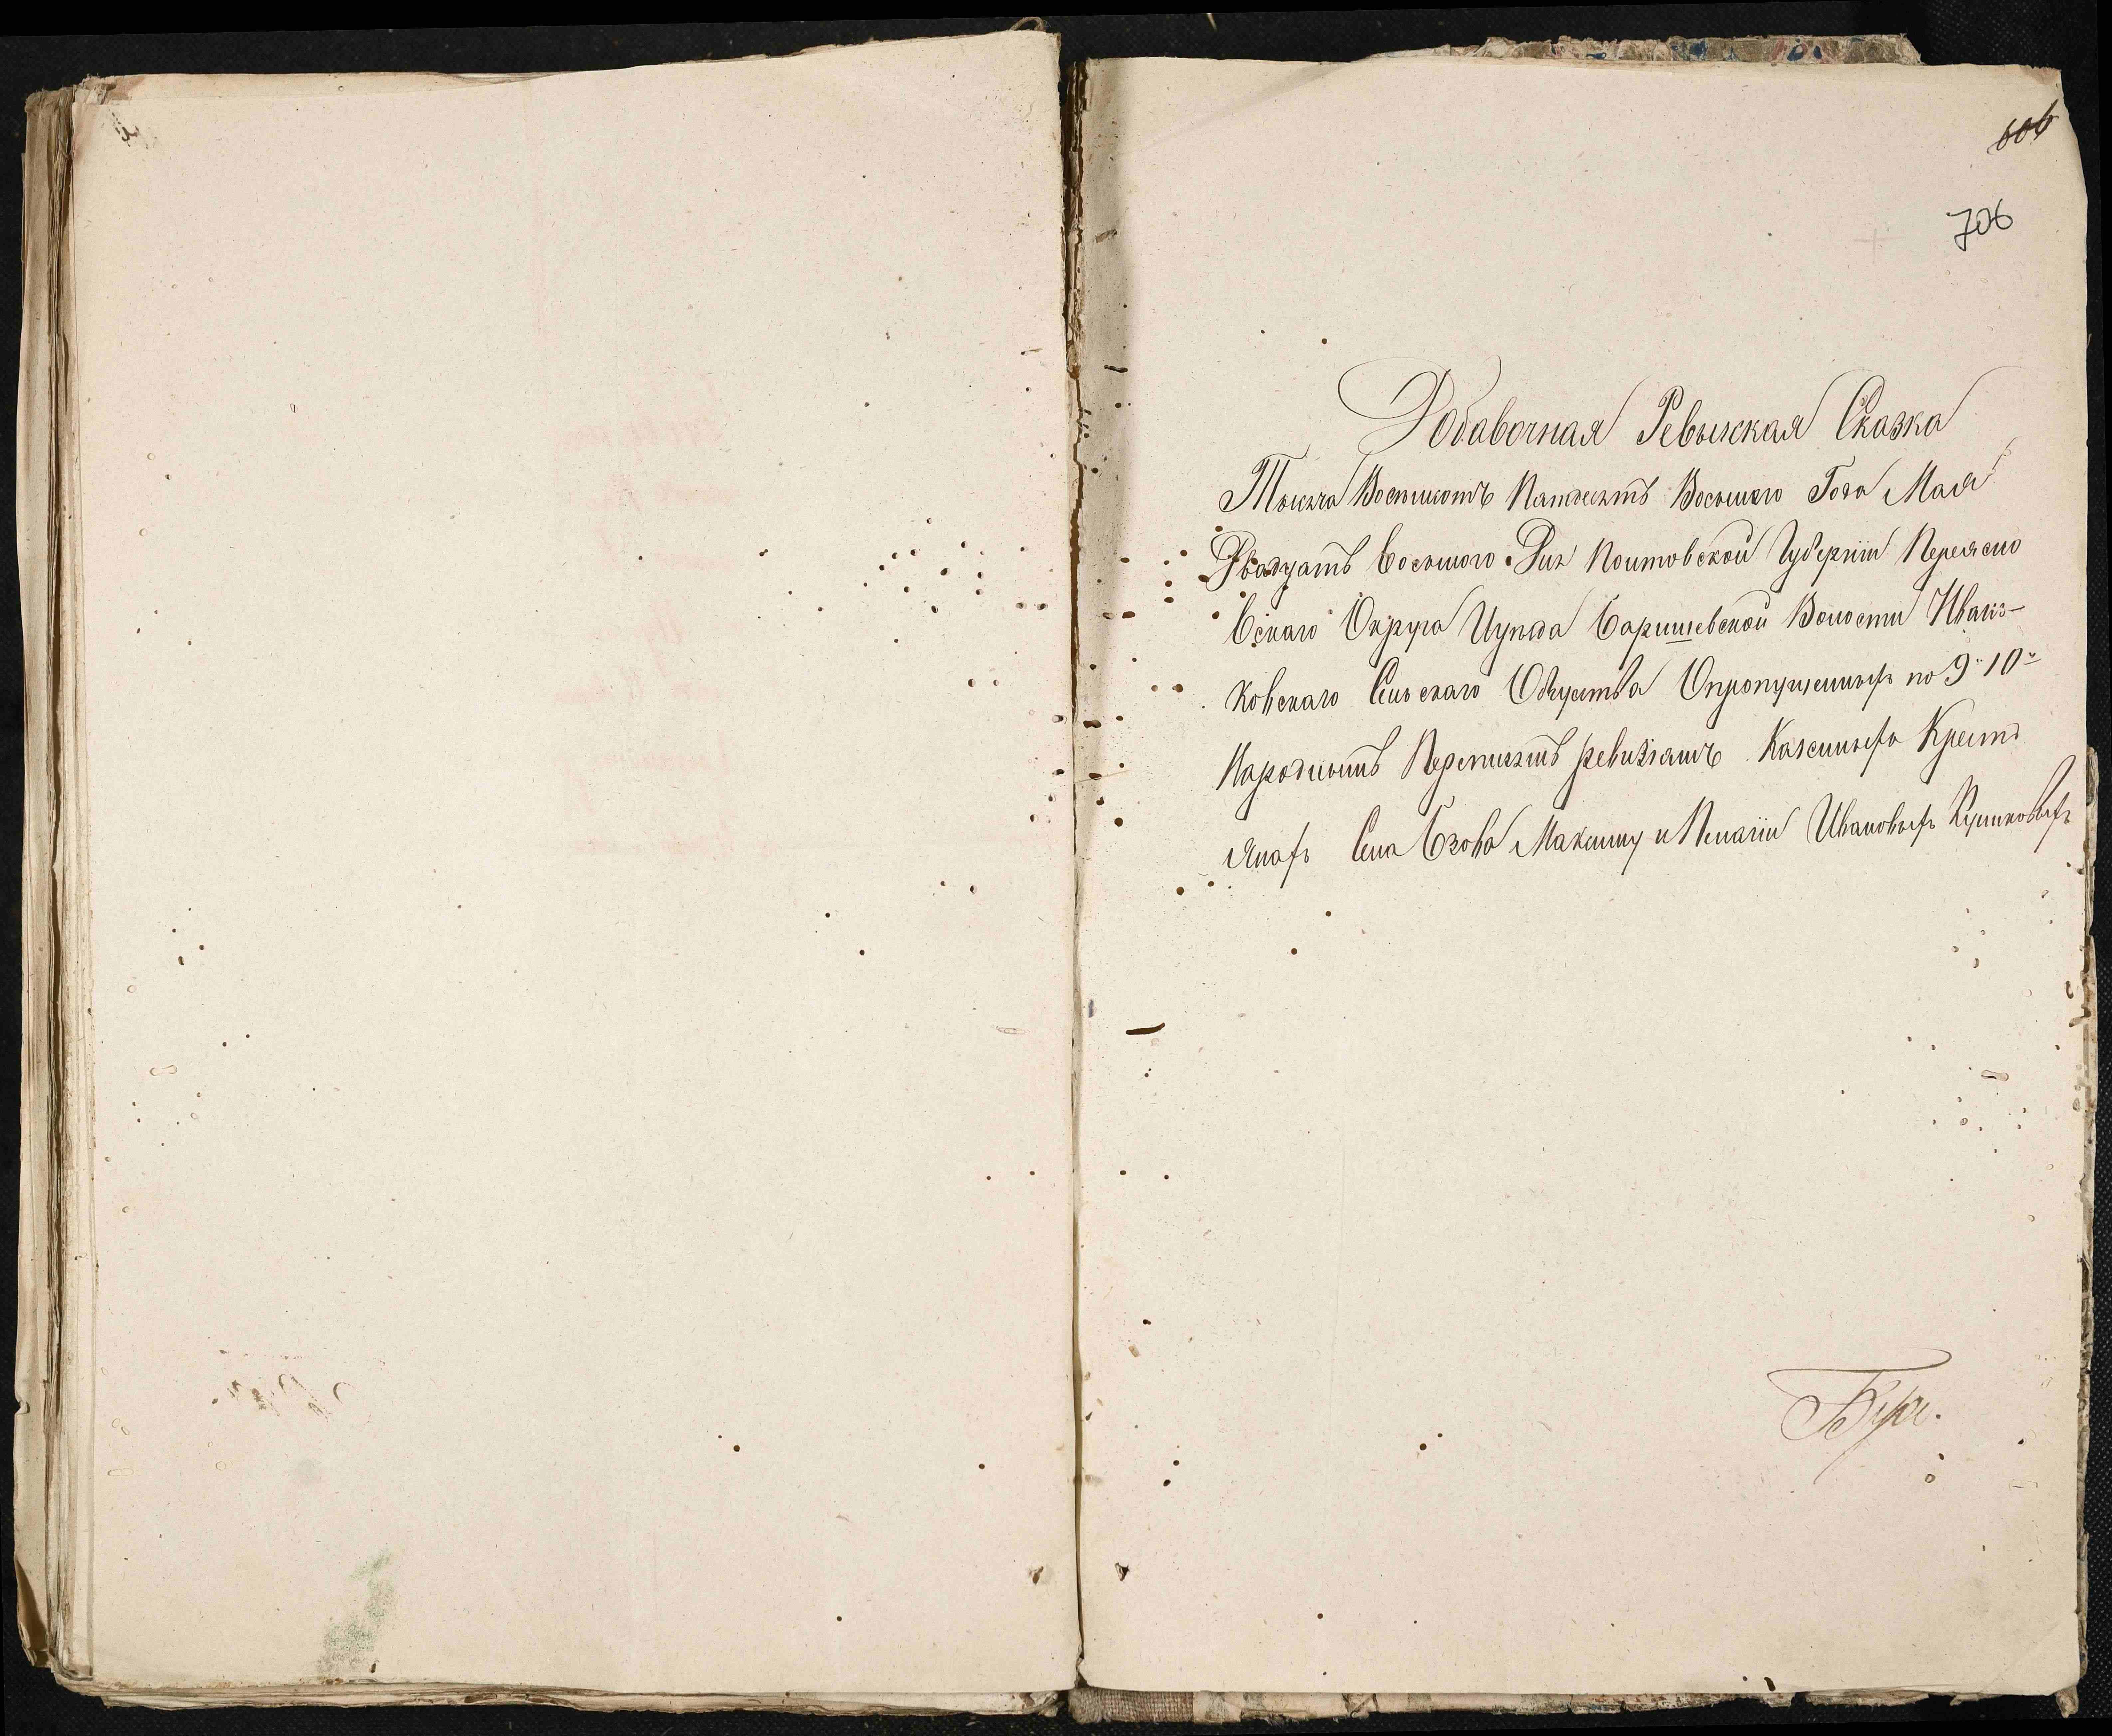 606
706
Добавочная Ревыжская Сказка
Тысяча Восьмсотъ Пятдесятъ Восьмого Года Мая
Двадцатъ восьмого Дня Полтовской Губерніи Переясло
вскаго Округа Иуѣзда Баришевской Волости Иванз-
ковскаго Сельскаго Общества Опропущенныхъ по 9й 10й
Народнымъ Переписямъ ревизіямъ Казенныхъ Крестъ
янахъ Села Бзова Максиму и Пелагіи Ивановыхъ